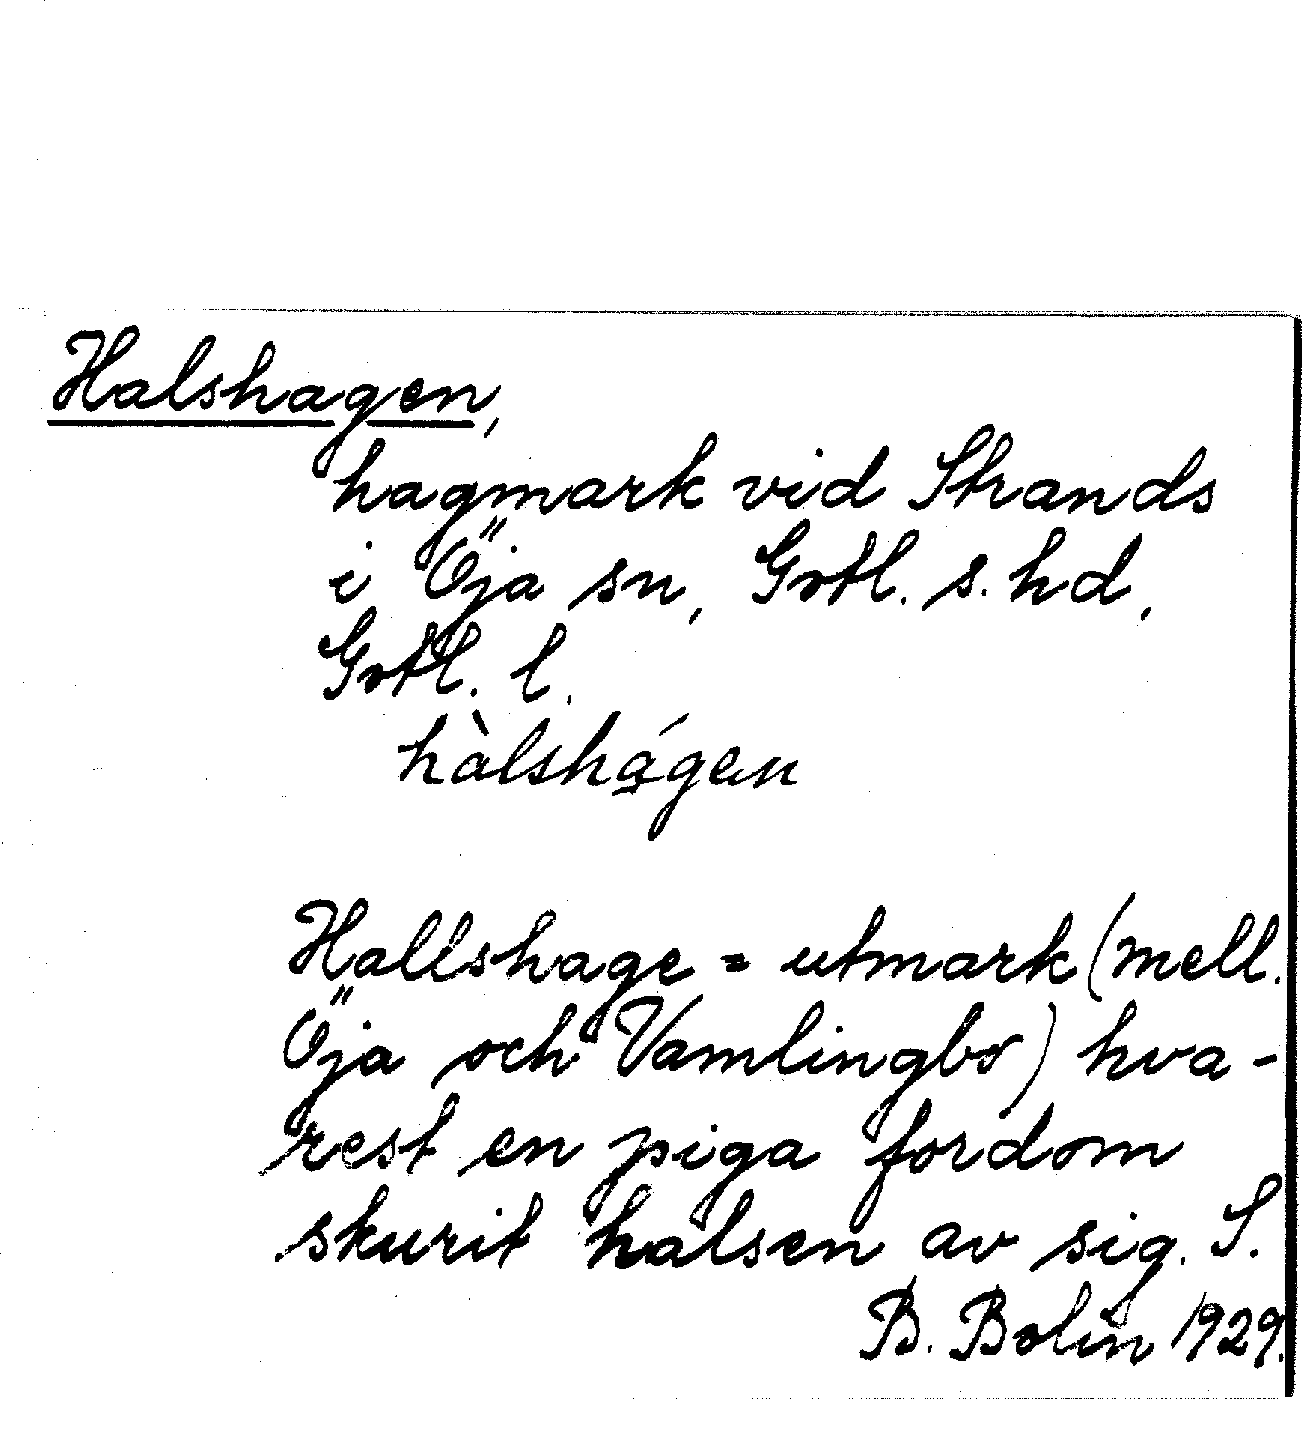 Halshagen,
hagmark vid Strands
i Öja sn, Gotl. s. hd,
Gotl. l.
hàlshá̱gen
Hallshage = utmark (mell.
Öja och Vamlingbo) hva-
rest en piga fordom
skurit halsen av sig. S.
B. Bolin 1929.